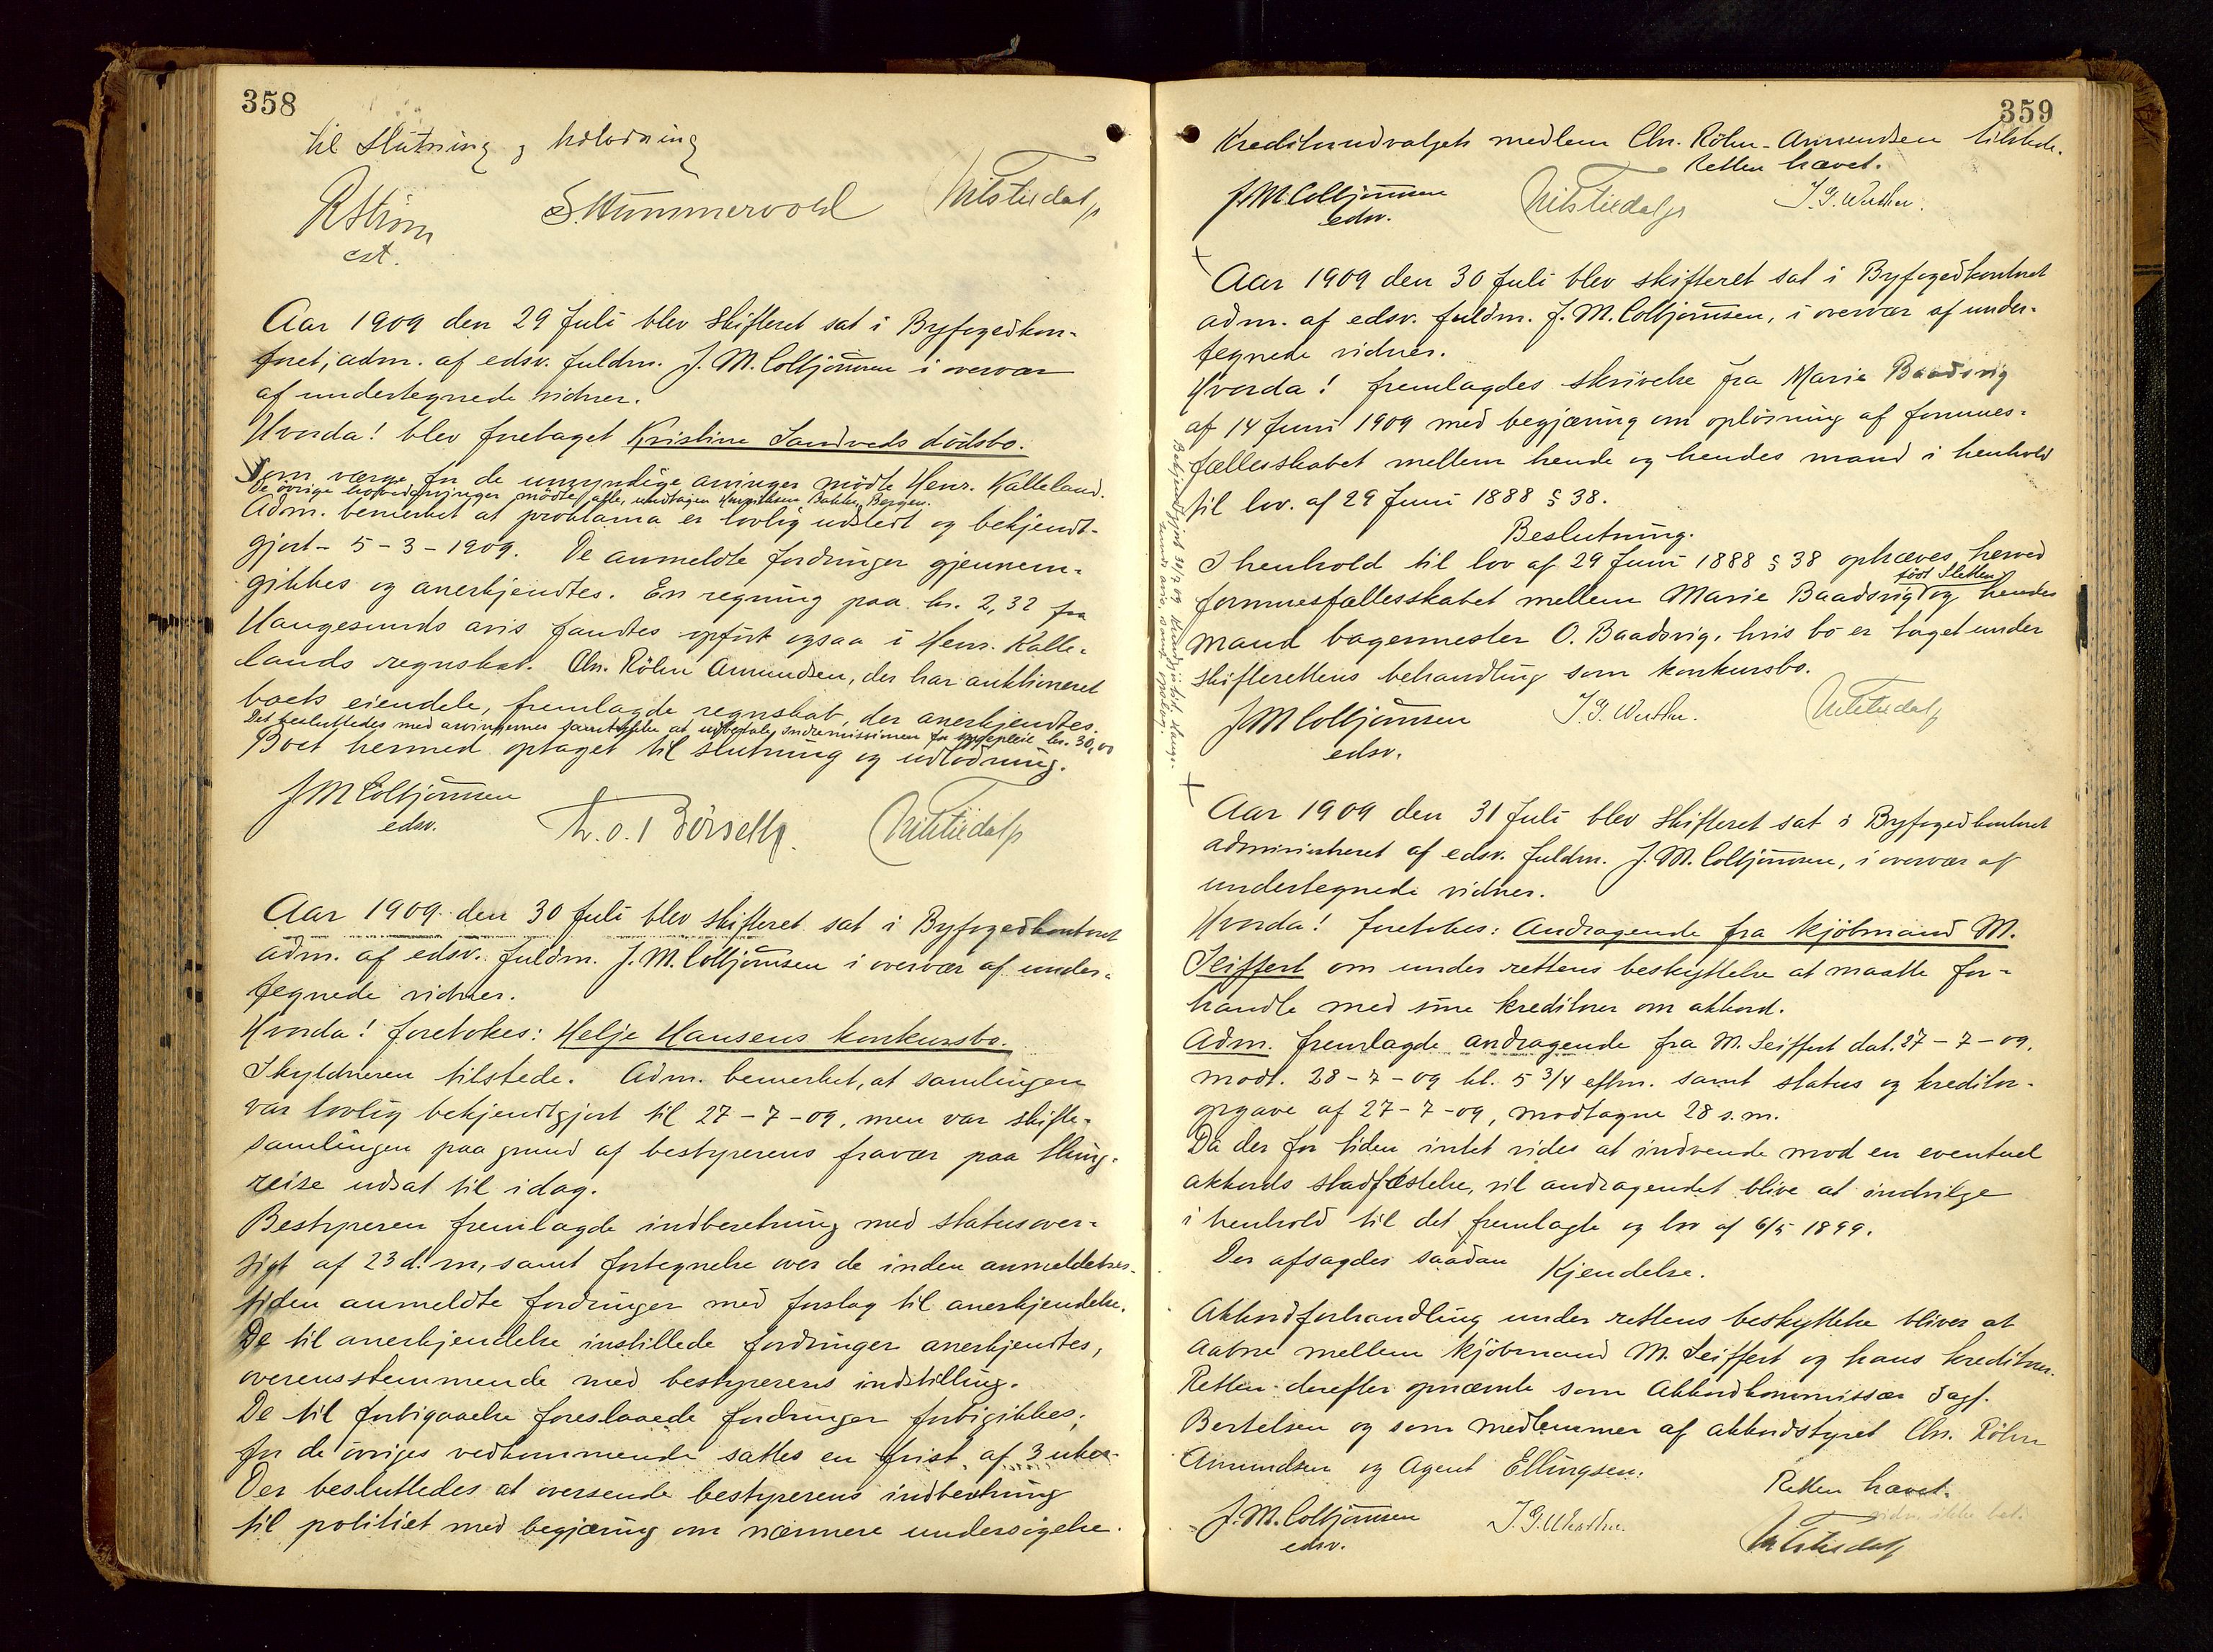 358
til slutning og udlodning
RStrøm
est.
S. Hummervold
Aar 1909 den 29 Juli blev skifteret sat i Byfogedkon-
toret, adm. af edsv. fuldm. J. M. Colbjørnsen i overvær
af undertegnede vidner.
Hvorda! blev foretaget Kristine Sandveds dødsbo.
Som værge for de umyndige arvinger mødte Henr. Kalleland.
De øvrige hovedarvinger mødte alle, undtagen Henriksen Bakke, Bergen.
Adm. bemerket at proklama er lovlig udstedt og bekjendt-
gjort - 5 - 3 - 1909. De anmeldte fordringer gjennem-
gikkes og anerkjendtes. En regning paa kr. 2,32 fra
Haugesunds avis fandtes opført ogsaa i Henr. Kalle-
lands regnskab. Chr. Röhr Amundsen, der har auktioneret
boets eiendele, fremlagde regnskab, der anerkjendtes.
Det besluttedes med arvingernes samtykke at udbetale Indremissionen for sygepleie kr. 30,00
Boet hermed optaget til slutning og udlodning.
J M Colbjørnsen
edsv.
Aar 1909 den 30 Juli blev skifteret sat i Byfogedkontoret
adm. af edsv. fuldm. J. M. Colbjørnsen i overvær af under-
tegnede vidner.
Hvorda! foretokes: Helje Hansens konkursbo.
Skyldneren tilstede. Adm. bemerket, at samlingen
var lovlig bekjendtgjort til 27 - 7 - 09, men var skifte-
samlingen paa grund af bestyrerens fravær paa thing-
reise udsat til idag.
Bestyreren fremlagde indberetning med statusover-
sigt af 23 d. m, samt fortegnelse over de inden anmeldelses-
tiden anmeldte fordringer med forslag til anerkjendelse.
De til anerkjendelse instillede fordringer anerkjendtes,
overensstemmende med bestyrerens indstilling.
De til forbigaaelse foreslaaede fordringer forbigikkes;
for de øvriges vedkommende sattes en frist af 3 uker.
Der besluttedes at oversende bestyrerens indberetning
til politiet med begjæring om nærmere undersøgelse.
359
Kreditorudvalgets medlem Chr. Röhr-Amundsen tilstede.
Retten hævet.
J. M. Colbjørnsen
edsv.
Aar 1909 den 30 Juli blev skifteret sat i Byfogedkontoret
adm. af edsv. fuldm. J. M. Colbjørnsen, i overvær af under-
tegnede vidner.
Hvorda! fremlagdes skrivelse fra Marie Baadsvig
af 14 Juni 1909 med begjæring om opløsning af formues-
fællesskabet mellem hende og hendes mand i henhold
til lov. af 29 Juni 1888 § 38.
Beslutning.
I henhold til lov af 29 Juni 1888 § 38 ophæves herved
født Sletten
formuesfællesskabet mellem Marie Baadsvig og hendes
mand bagermester O. Baadsvig, hvis bo er taget under
skifterettens behandling som konkursbo.
J M Colbjørnsen
edsv.
Aar 1909 den 31 Juli blev skifteret sat i Byfogedkontoret
administreret af edsv. fuldm. J. M. Colbjørnsen, i overvær af
undertegnede vidner.
Hvorda! foretokes: Andragende fra kjøbmand M.
Seiffert om under rettens beskyttelse at maatte for-
handle med sine kreditorer om akkord.
Adm. fremlagde andragende fra M. Seiffert dat. 27 - 7 - 09.
modt. 28 - 7 - 09 kl. 5 3/4 eftm. samt status og kreditor-
opgave af 27 - 7 - 09, modtagne 28 s. m.
Da der for tiden intet vides at indvende mod en eventuel
akkords stadfæstelse, vil andragendet blive at indvilge
i henhold til det fremlagte og lov af 6/5 1899.
Der afsagdes saadan Kjendelse.
Akkordforhandling under rettens beskyttelse bliver at
aabne mellem kjøbmand M. Seiffert og hans kreditorer.
Retten derefter opnævnte som Akkordkommissær Sagf.
Bertelsen og som medlemmer af akkordstyret Chr. Röhr
Amundsen og Agent Ellingsen.
Retten hævet.
vidn. ikke bet.
J. M. Colbjørnsen
edsv.